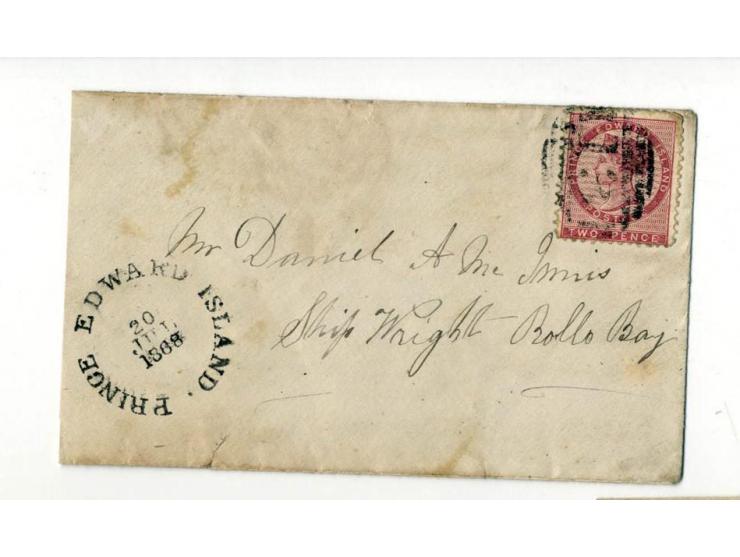 PRINCE EDWARD ISLAND
POSTAGE
TWO PENCE
Mr Daniel A Mc Innis
Ship Wright Rollo Bay
PRINCE EDWARD ISLAND.
20
JUL
1868